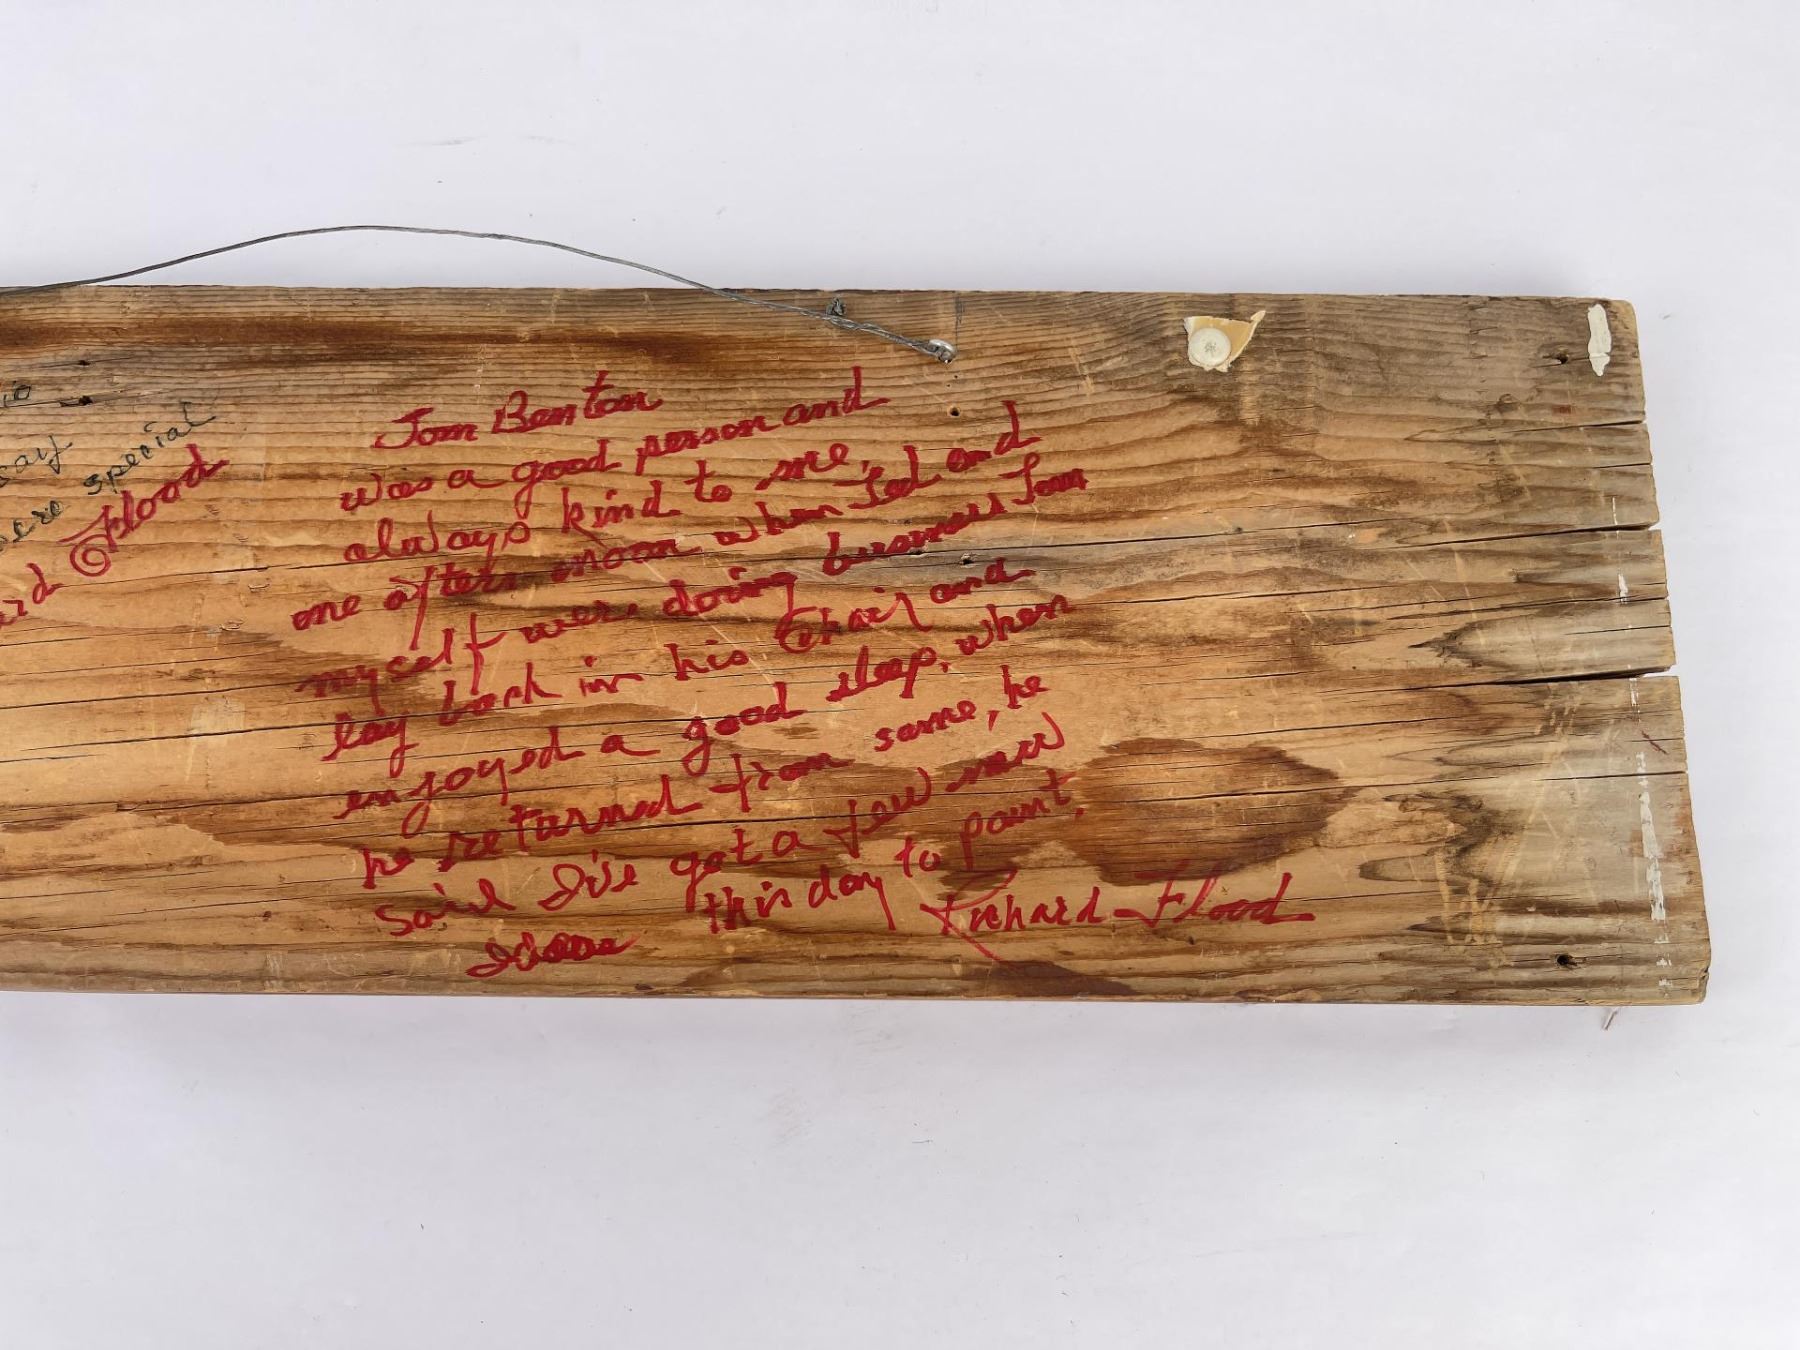 special
Flood
Tom Benton
was a good person and
always kind to me,
one after noon when Ted and
myself were doing business Tom
lay back in his Chair and
enjoyed a good sleep, when
he returned from same, he
said I've got a few new
Ideas this day to paint.
Richard Flood